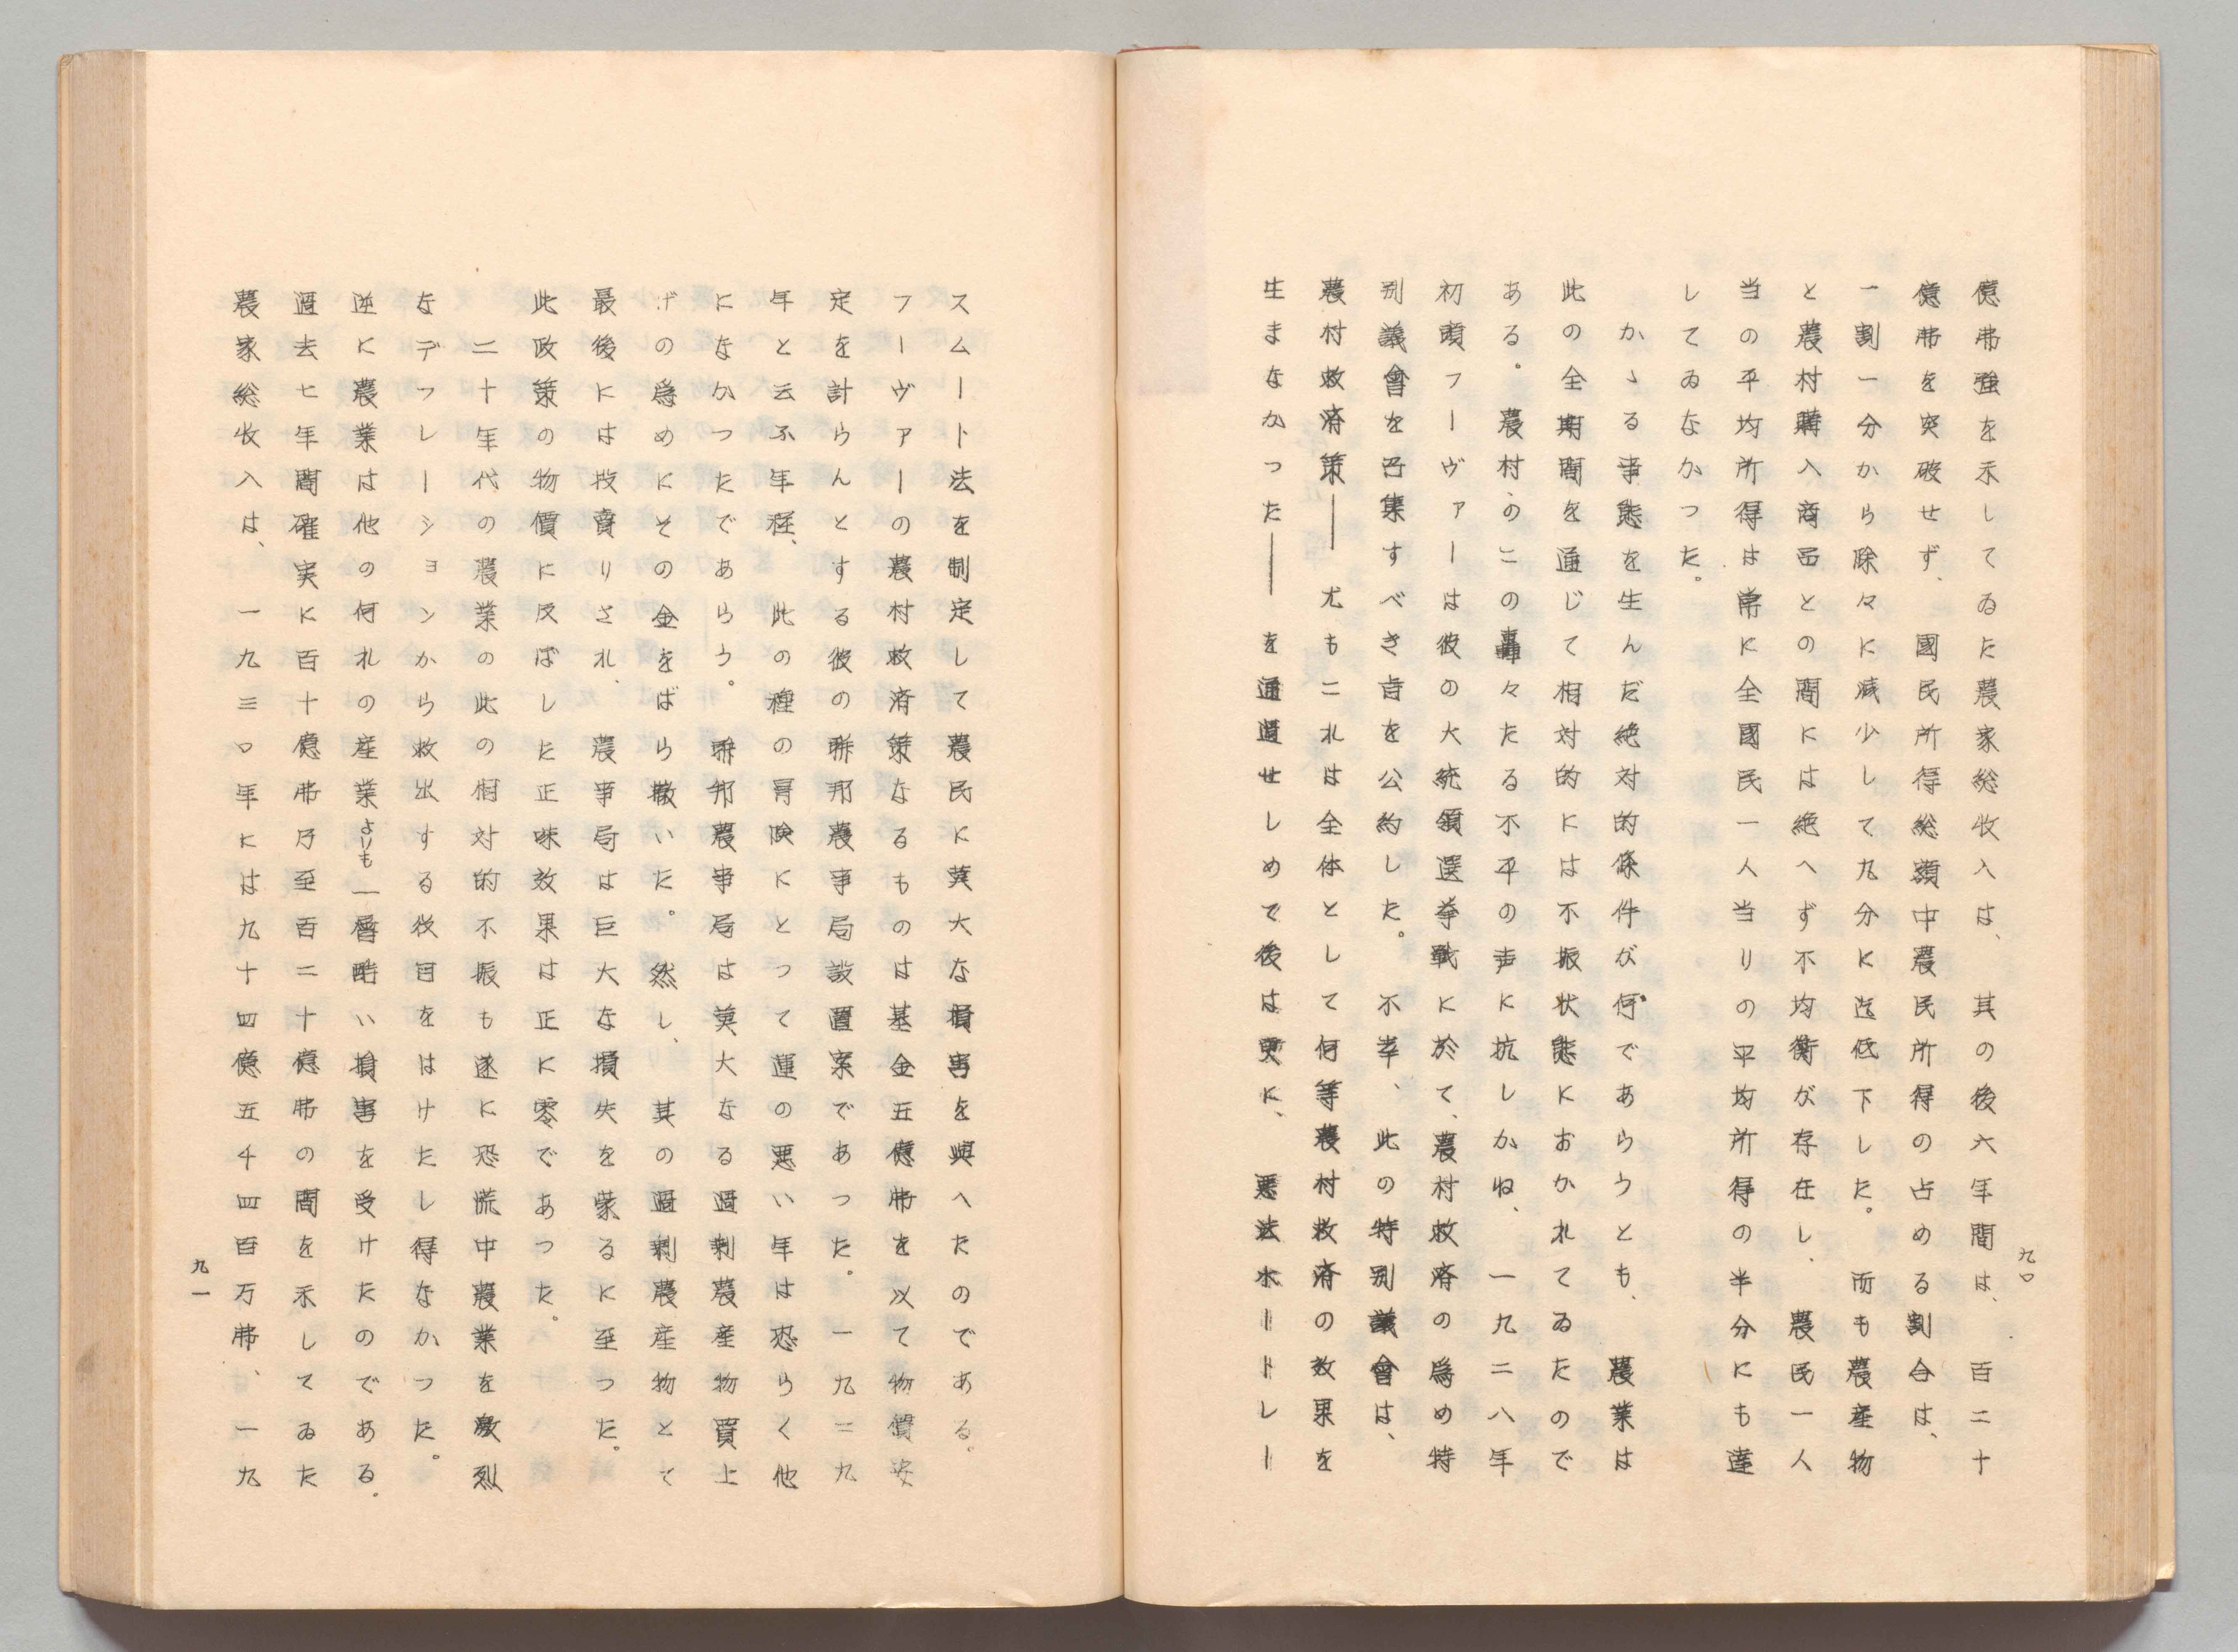 億弗強を示してゐた農家総收入は、其の後六年間は、百二十
億弗を突破せず、國民所得総額中農民所得の占める割合は、
一割一分から除々に減少して九分に迄低下した。而も農産物
と農村購入商品との間には絶へず不均衡が存在し、農民一人
当の平均所得は常に全國民一人当りの平均所得の半分にも達
してゐなかつた。
かゝる事態を生んだ絶対的條件が何であらうとも、農業は
此の全期間を通じて相対的には不振状態におかれてゐたので
ある。農村のこの轟々たる不平の声に抗しかね、一九二八年
初頭フーヴァーは彼の大統領選挙戦に於て、農村救済の爲め特
別議會を召集すべき旨を公約した。不幸、此の特別議會は、
農村救済策――尤もこれは全体として何等農村救済の效果を
生まなかつた――を通過せしめて後は更に、悪法ホートレー
九〇
スムート法を制定して農民に莫大な損害を與へたのである。
フーヴァーの農村救済策なるものは基金五億弗を以て物價安
定を計らんとする彼の聯邦農事局設置案であつた。一九二九
年と云ふ年程、此の種の冐険にとつて運の悪い年は恐らく他
になかつたであらう。聯邦農事局は莫大なる過剰農産物買上
げの爲めにその金をばら撒いた。然し、其の過剰農産物とて
最後には投賣りされ、農事局は巨大な損失を蒙るに至つた。
此政策の物價に及ぼした正味效果は正に零であつた。
二十年代の農業の此の相対的不振も遂に恐慌中農業を激烈
なデフレーションから救出する役目をはけたし得なかつた。
逆に農業は他の何れの産業よりも一層酷い損害を受けたのである。
過去七年間確実に百十億弗乃至百二十億弗の間を示してゐた
農家総收入は、一九三〇年には九十四億五千四百万弗、一九
九一